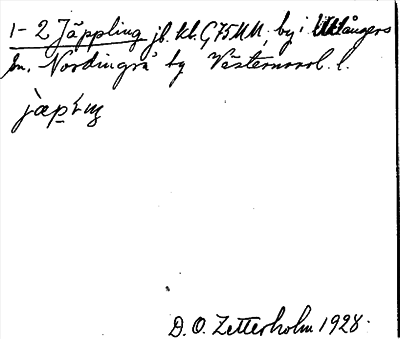 1-2 Jäppling jb. kb. G75MM, by i Ullångers
sn. Nordingrå tg Västernorrl. l.
jæpliŋ
D. O. Zetterholm 1928.